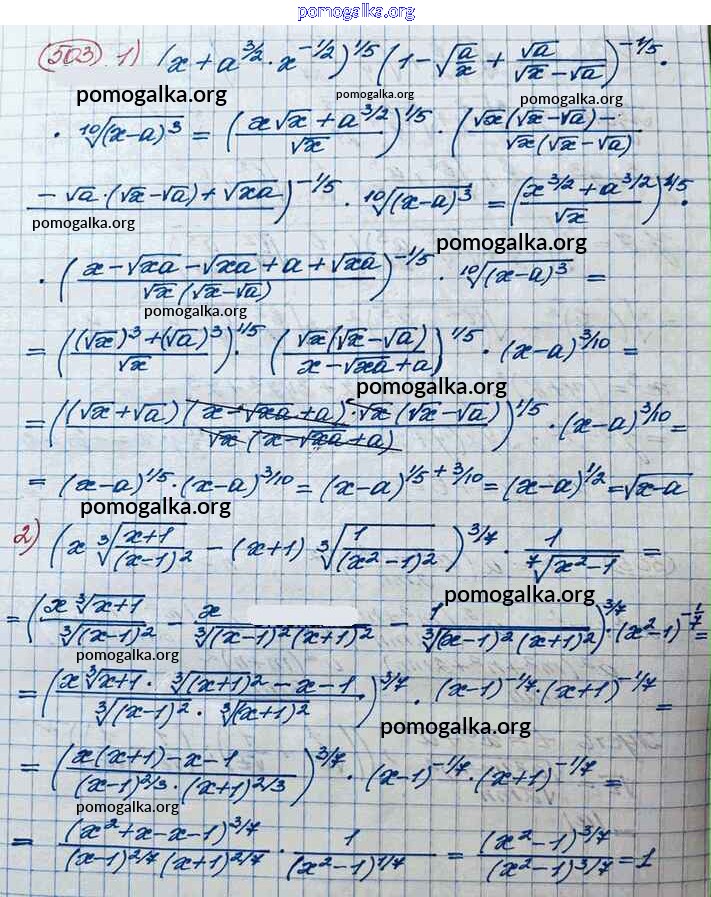 pomogalka.org
503 1) (x + a^{3/2} · x^{-1/2})^{1/5} (1 - √(a/x) + √a/(√x - √a))^{-1/5} ·
pomogalka.org pomogalka.org pomogalka.org
· ¹⁰√(x-a)³ = ((x√x + a^{3/2})/√x)^{1/5} · ((√x(√x - √a) -)/(√x(√x - √a))
(- √a · (√x - √a) + √xa)/)^{-1/5} · ¹⁰√(x-a)³ = ((x^{3/2} + a^{3/2})/√x)^{1/5} ·
pomogalka.org pomogalka.org
· ((x - √xa - √xa + a + √xa)/(√x (√x - √a)))^{-1/5} · ¹⁰√(x-a)³ =
pomogalka.org
= (((√x)³ + (√a)³)/√x)^{1/5} · ((√x(√x - √a))/(x - √xa + a))^{1/5} · (x-a)^{3/10} =
pomogalka.org
= (((√x + √a)(x - √xa + a) · √x (√x - √a))/(√x (x - √xa + a)))^{1/5} · (x-a)^{3/10} =
= (x-a)^{1/5} · (x-a)^{3/10} = (x-a)^{1/5 + 3/10} = (x-a)^{1/2} = √(x-a)
pomogalka.org
2) (x ³√((x+1)/(x-1)²) - (x+1) ³√(1/(x²-1)²))^{3/7} · 1/⁷√(x²-1) =
pomogalka.org
= ((x ³√(x+1))/³√(x-1)² - x/³√((x-1)²(x+1)²) - 1/³√((x-1)²(x+1)²))^{3/7} · (x²-1)^{-1/7} =
pomogalka.org
= ((x ³√(x+1) · ³√(x+1)² - x - 1)/(³√(x-1)² · ³√(x+1)²))^{3/7} · (x-1)^{-1/7} · (x+1)^{-1/7} =
pomogalka.org
= ((x(x+1) - x - 1)/((x-1)^{2/3} · (x+1)^{2/3}))^{3/7} · (x-1)^{-1/7} · (x+1)^{-1/7} =
pomogalka.org
= ((x² + x - x - 1)^{3/7})/((x-1)^{2/7} (x+1)^{2/7}) · 1/(x²-1)^{1/7} = (x²-1)^{3/7}/(x²-1)^{3/7} = 1